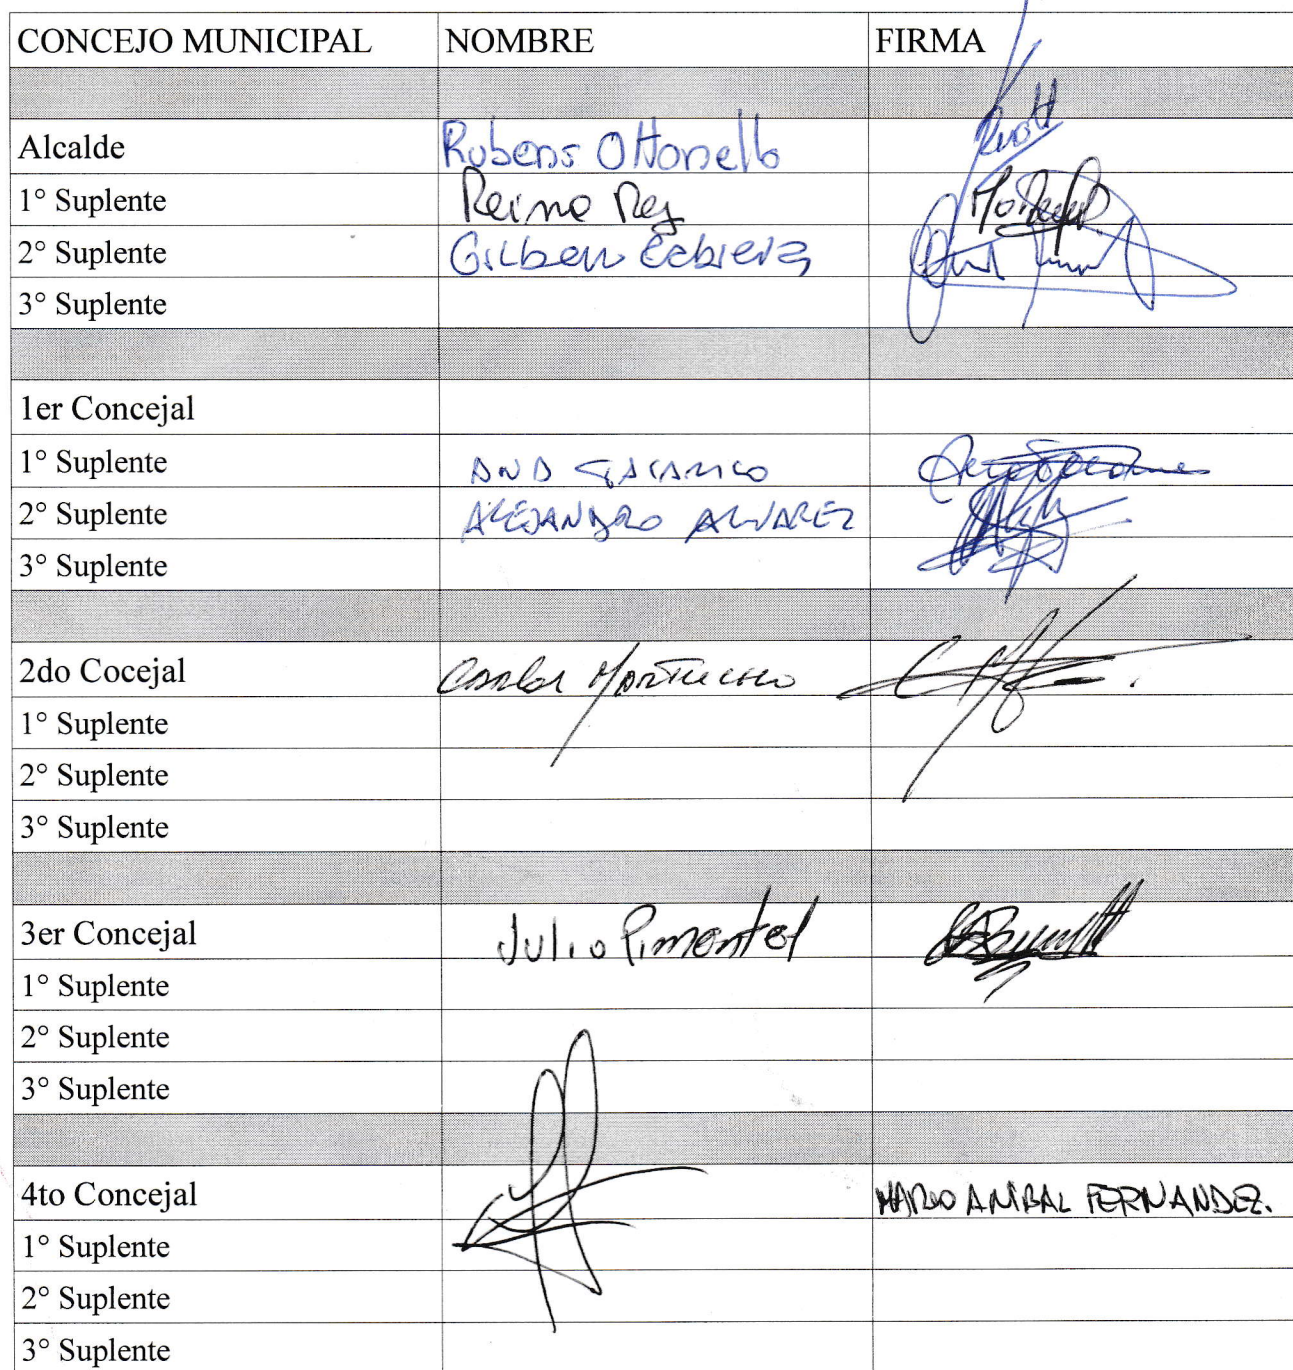 CONCEJO MUNICIPAL NOMBRE FIRMA
Alcalde Rubens Ottonello
1° Suplente Reina Rey
2° Suplente Gilbert Cabrera
3° Suplente
1er Concejal
1° Suplente ANA
2° Suplente ALEJANDRO ALVAREZ
3° Suplente
2do Cocejal Carlos
1° Suplente
2° Suplente
3° Suplente
3er Concejal Julio Pimentel
1° Suplente
2° Suplente
3° Suplente
4to Concejal MARIO ANIBAL FERNANDEZ.
1° Suplente
2° Suplente
3° Suplente